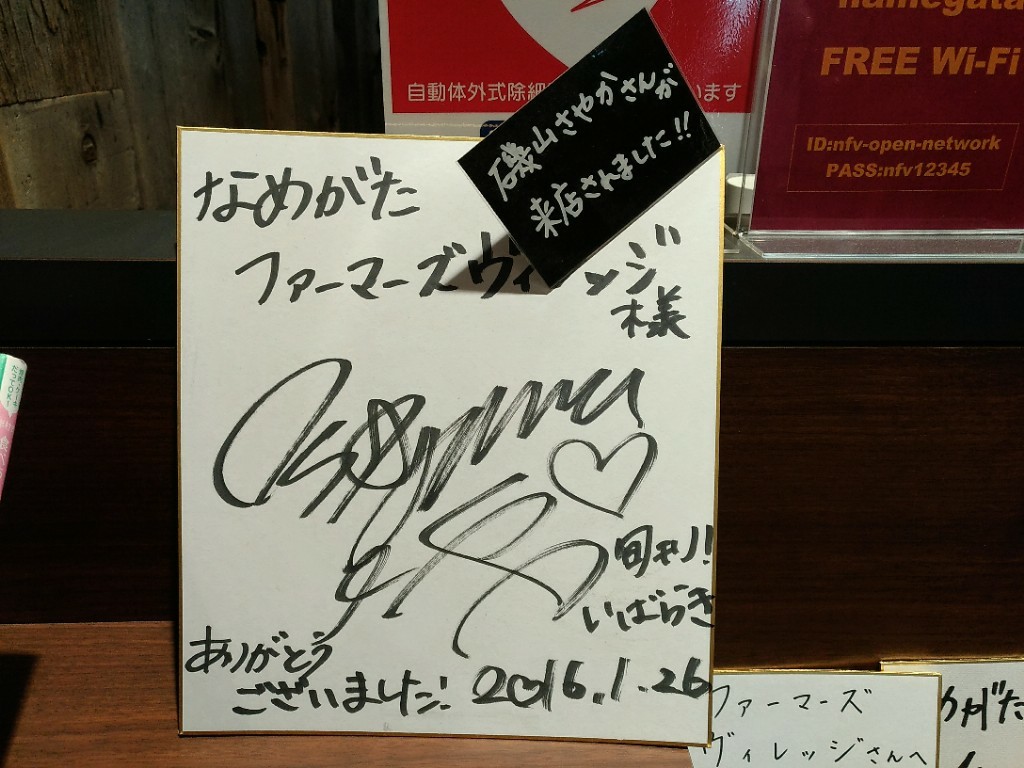 自動体外式除細
います
namegata
FREE Wi-Fi
ID:nfv-open-network
PASS:nfv12345
磯山さやかさんが
来店されました!!
なめがた
ファーマーズヴィレッジ
様
旬キリ!
いばらき
ありがとう
ございました!
2016.1.26
ファーマーズ
ヴィレッジさんへ